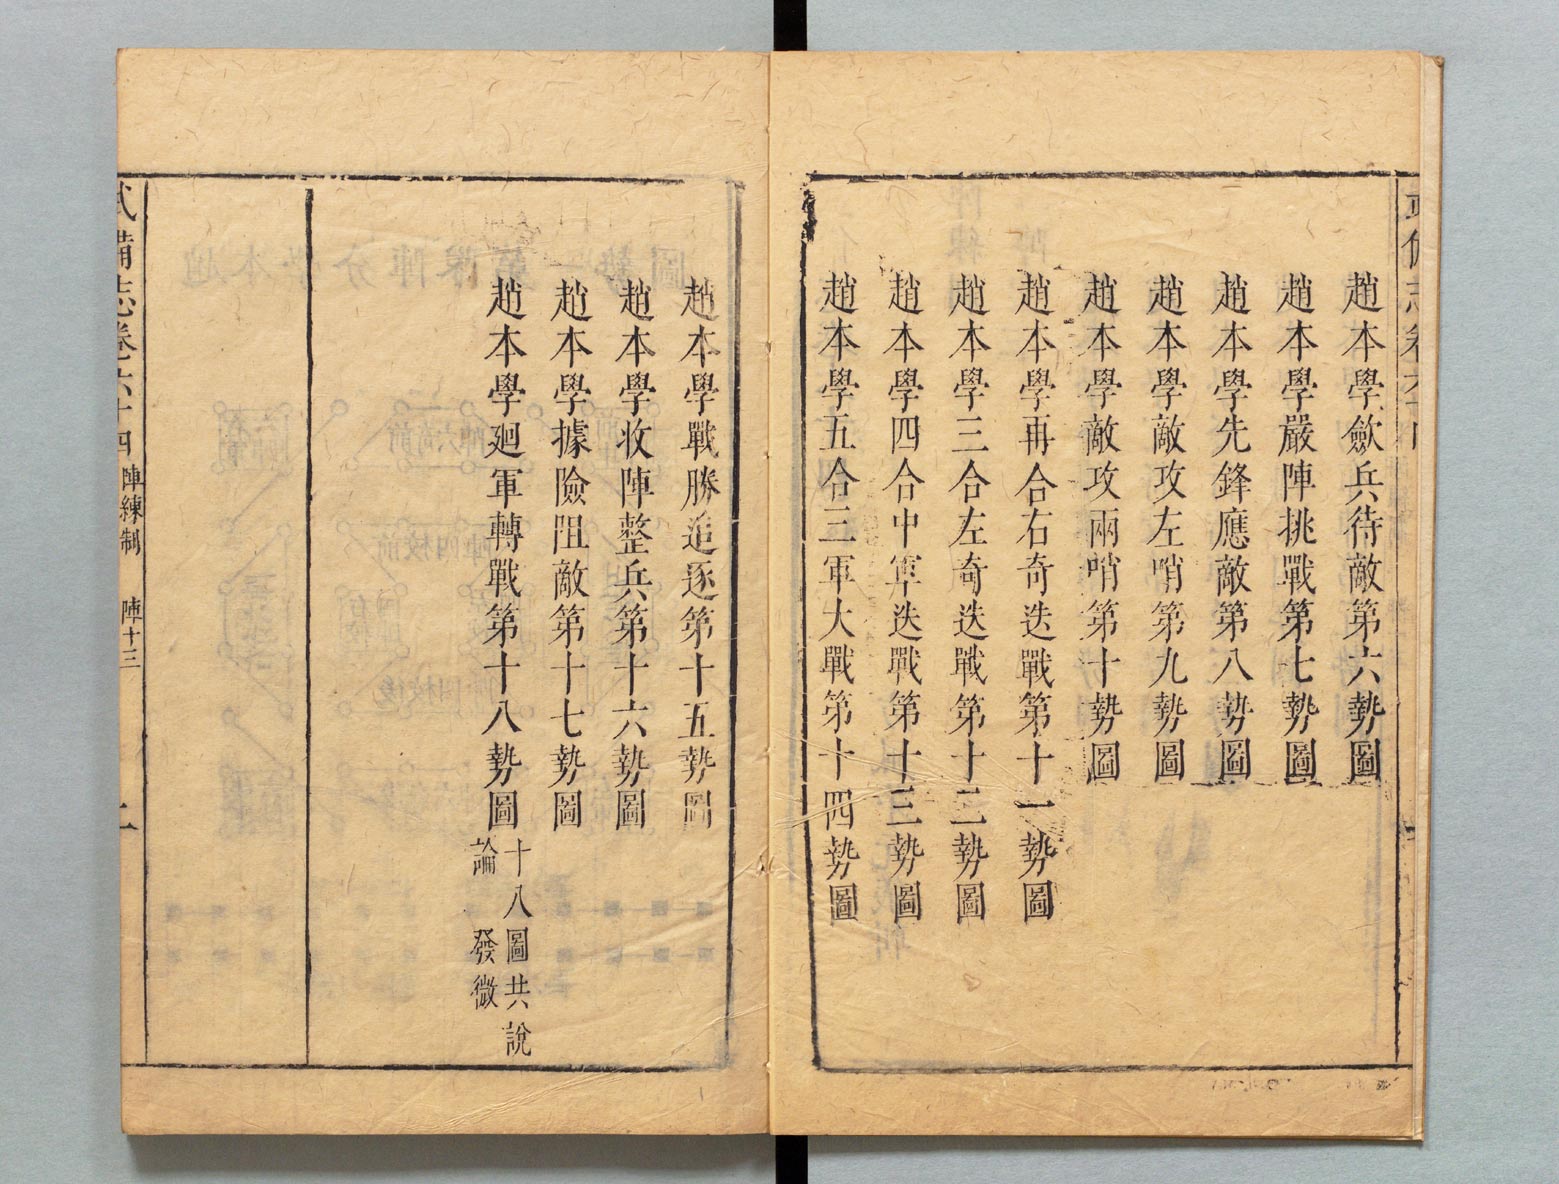 趙本學歛兵待敵第六勢圖
趙本學嚴陣挑戰第七勢圖
趙本學先鋒應敵第八勢圖
趙本學敵攻左哨第九勢圖
趙本學敵攻兩哨第十勢圖
趙本學再合右奇迭戰第十一勢圖
趙本學三合左奇迭戰第十二勢圖
趙本學四合中軍迭戰第十三勢圖
趙本學五合三軍大戰第十四勢圖
趙本學戰勝追逐第十五勢圖
趙本學收陣整兵第十六勢圖
趙本學據險阻敵第十七勢圖
趙本學廻軍轉戰第十八勢圖
十八圖共說
論 發微
武備志卷六十四 陣練制 陣十三